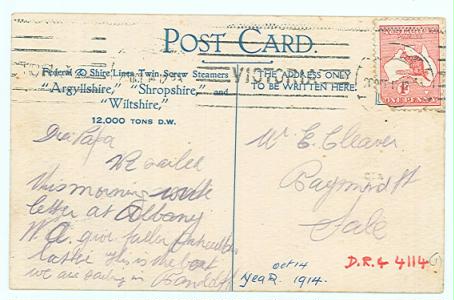 POST CARD.
Federal & Shire Lines Twin Screw Steamers
"Argyllshire," "Shropshire," and
"Wiltshire,"
12,000 TONS D.W.
THE ADDRESS ONLY
TO BE WRITTEN HERE.
VICTORIA
ONE PENNY
Dear Papa
We sailed
this morning
letter at Albany
W.A. give fuller
later This is the boat
we are sailing in
W. E. Cleaver
Raymond St
Sale
oct 14
Year. 1914.
D.R.& 4114